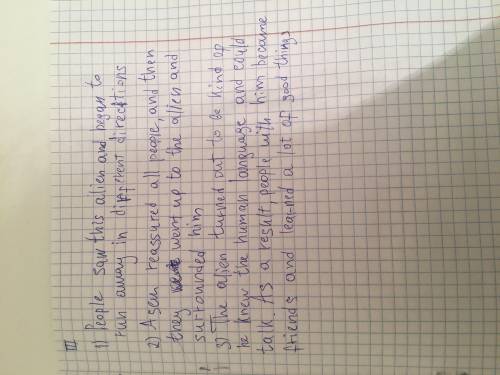 III
1) People saw this alien and began to
run away in different directions
2) Asem reassured all people, and then
they went up to the alien and
surrounded him
3) The alien turned out to be kind of
he knew the human language and could
talk. As a result, people with him became
friends and learned a lot of good things